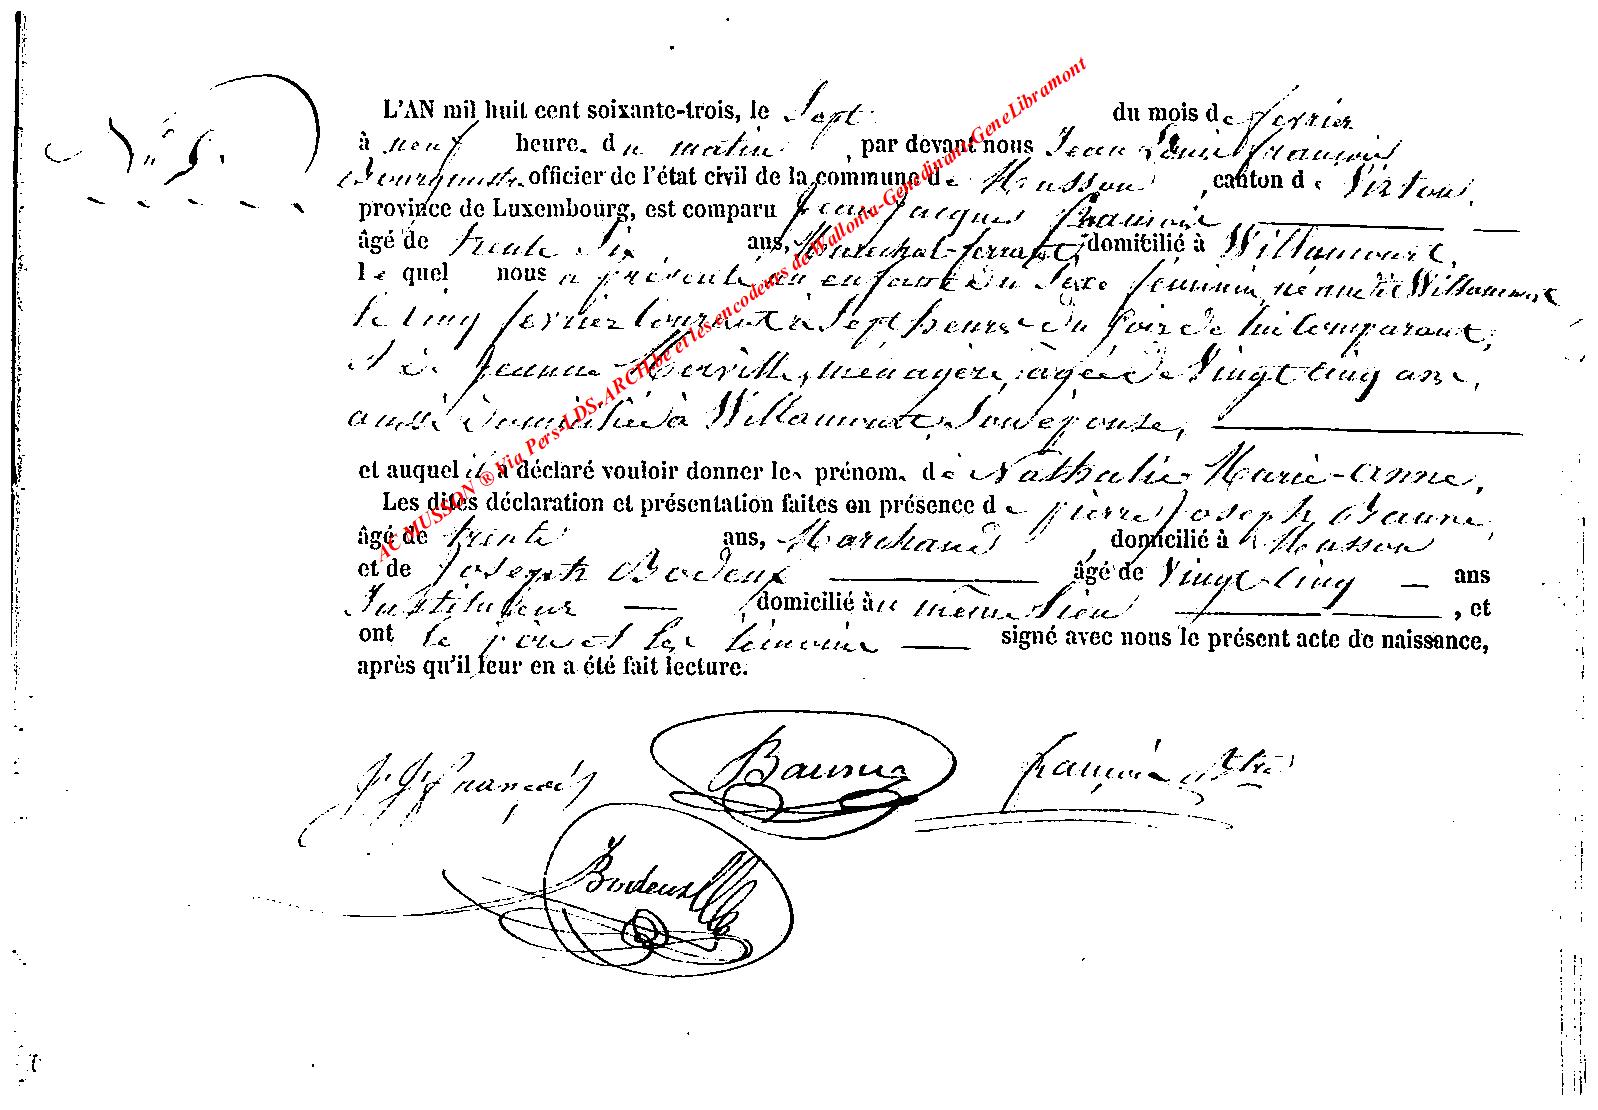 N° 5.
L'AN mil huit cent soixante-trois, le Sept du mois de février
à neuf heure. du matin, par devant nous Jean Louis François
Bourgmestre officier de l'état civil de la commune de Musson, canton de Virton,
province de Luxembourg, est comparu Jean Jacques François
âgé de trente Six ans, Maréchal-ferrant, domicilié à Willancourt,
le quel nous a présenté un enfant du Sexe féminin, né audit Willancourt
le cinq février courant à Sept heures du Soir de lui comparant,
et de Jeanne Merville, ménagère, âgée de Vingt cinq ans,
aussi domiciliée à Willancourt, Son épouse,
et auquel il a déclaré vouloir donner les prénom. de Nathalie Marie-Anne.
Les dites déclaration et présentation faites en présence de pierre Joseph Baune
âgé de trente ans, Marchand, domicilié à Musson
et de Joseph Bodeux âgé de Vingt-cinq ans
Instituteur, domicilié au même lieu, et
ont le père et les témoins signé avec nous le présent acte de naissance,
après qu'il leur en a été fait lecture.
J. J. François Baune françois
Bodeux
AC MUSSON ® Via Pers-LDS-ARCH.be et les encodeurs de Wallonia-Genedinant-GeneLibramont